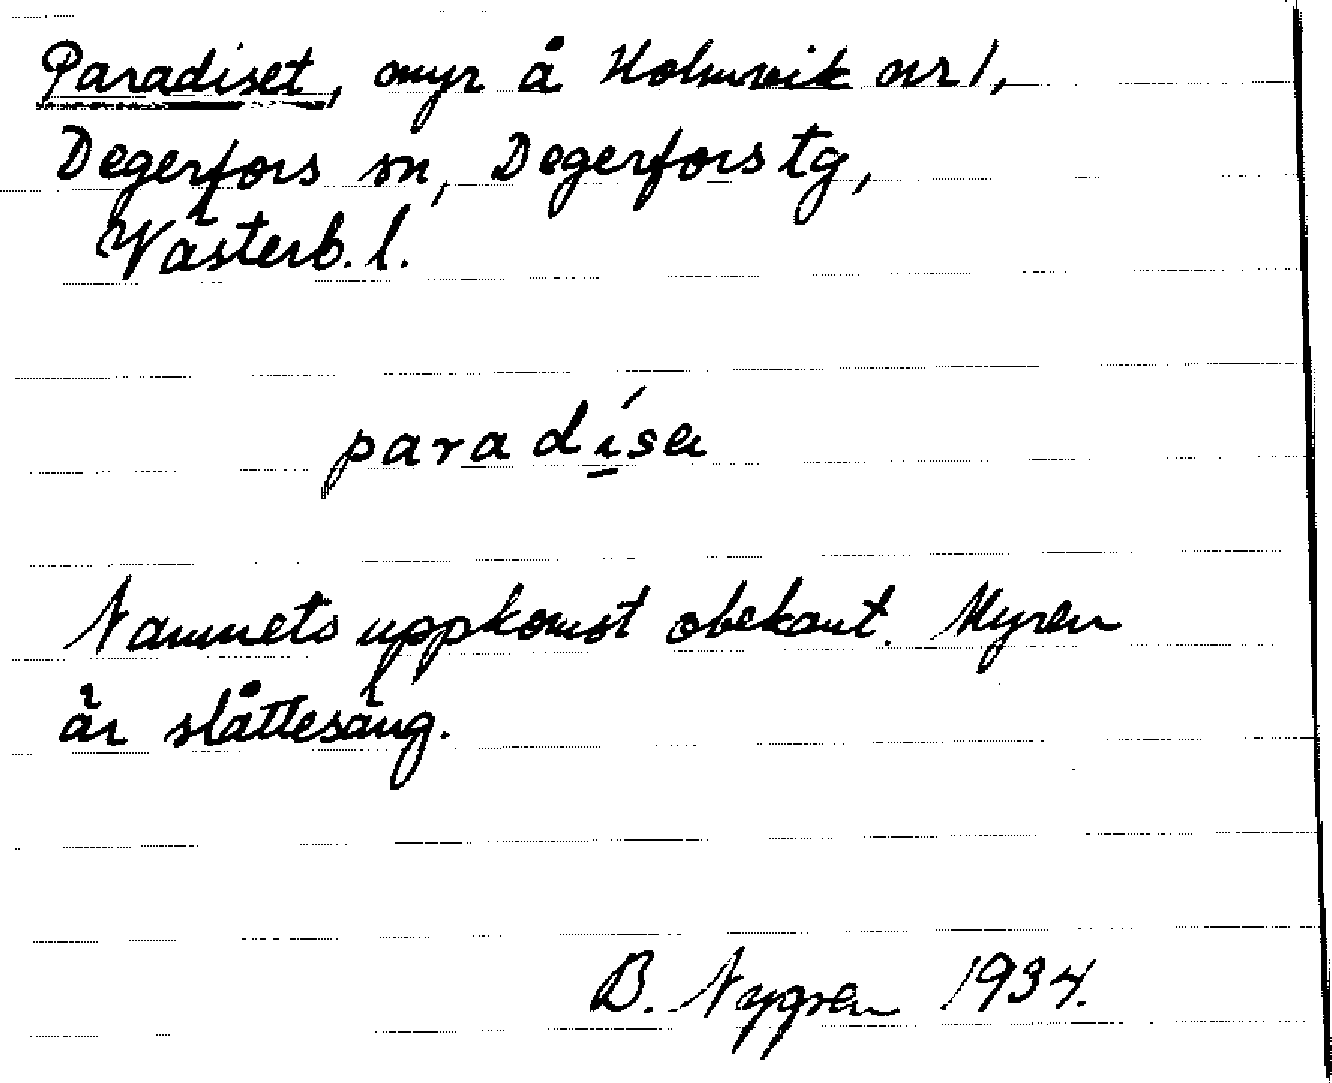 Paradiset, myr å Holmvik nr 1,
Degerfors sn, Degerfors tg,
Västerb. l.
paradí̲sa
Namnets uppkomst obekant. Myren
är slåttesäng.
B. Nygren 1934.